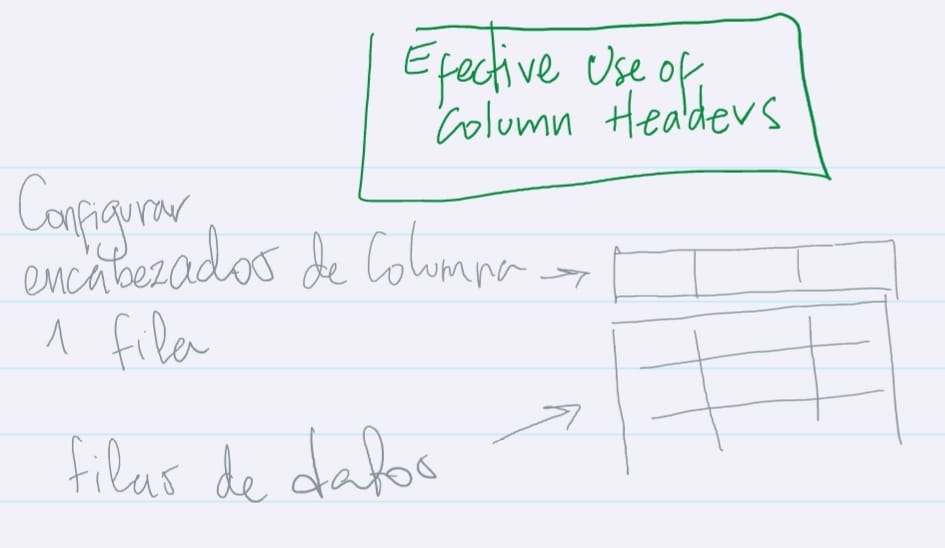 Efective Use of
Column Headers
Configurar
encabezados de Columna
1 fila
filas de datos